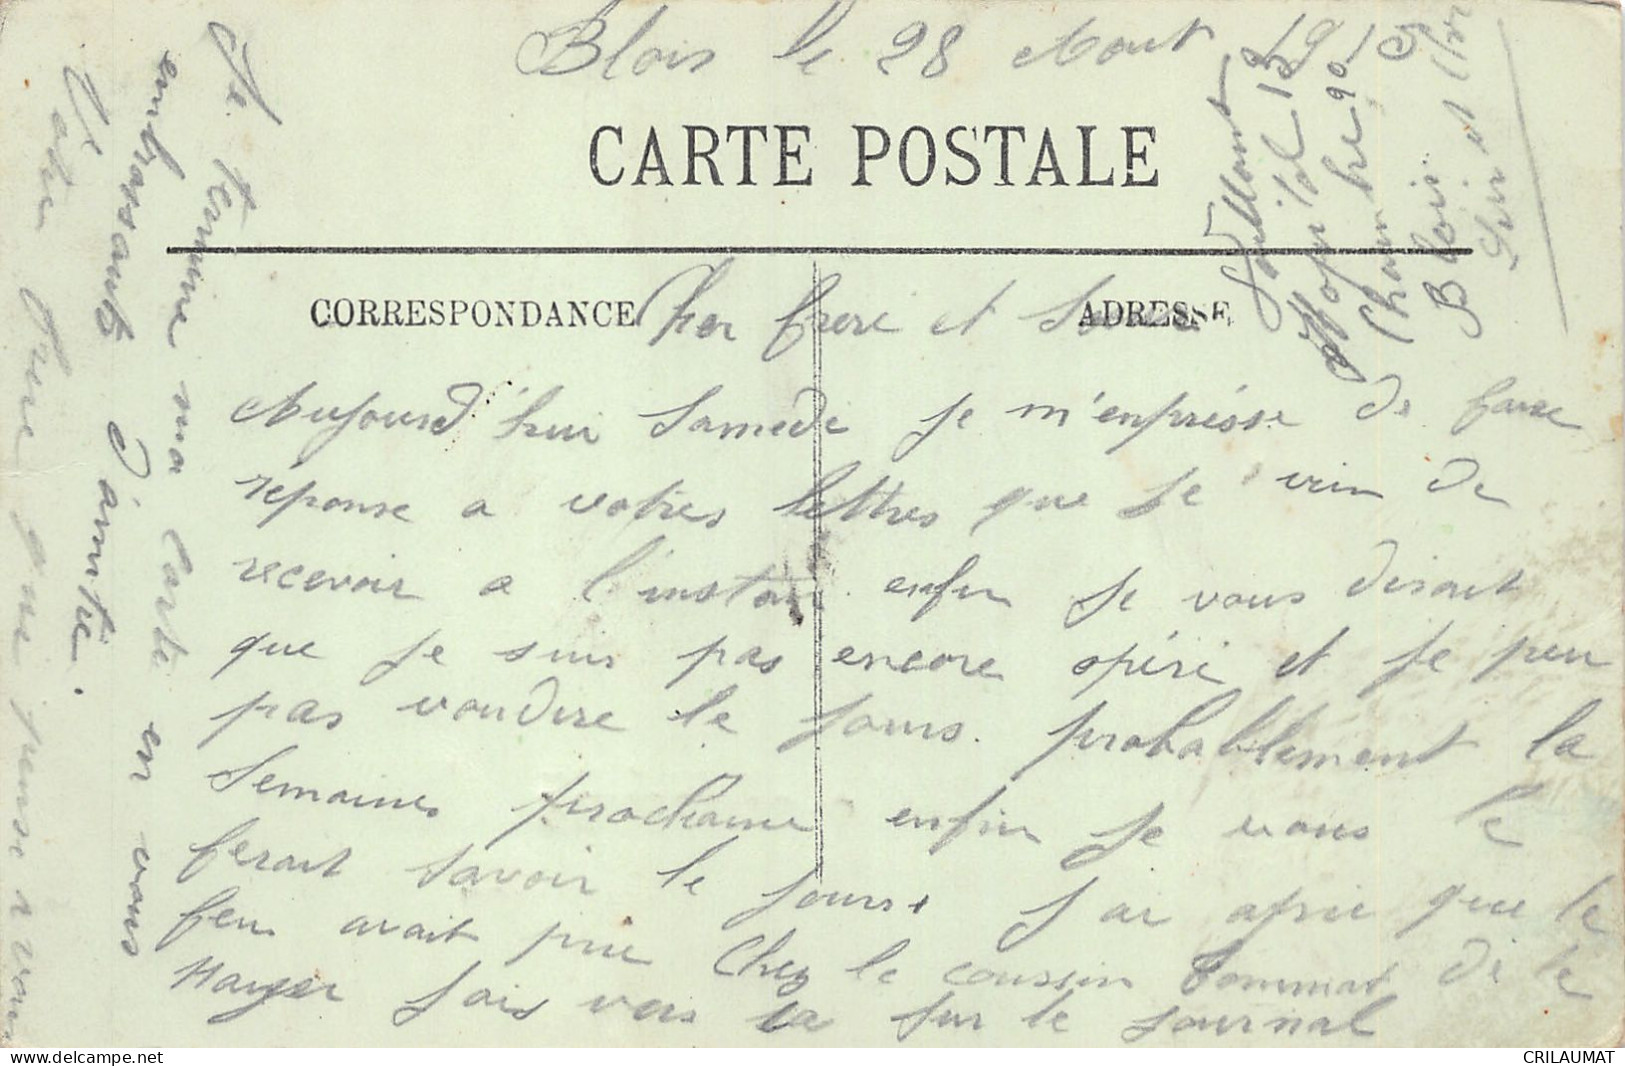 Blois le 28 Aout 1915
CARTE POSTALE
Hopital 12
Chambre 90
Blois
Loir et Cher
CORRESPONDANCE
ADRESSE
Cher frere et Soeur
Aujourd'hui Samedi je m'enprésse de faire
réponse a votres lettres que je vien de
recevoir a l'instant enfin je vous dirait
que je suis pas encore opéré et je peu
pas voudire le jours. probablement la
Semaines prochaine enfin je vous le
ferait savoir le jours. J'ai apris que le
feu avait pris Chez le coussin Tommat de te
fois vers la sur le journal
Je termine ma Carte en vous
embrassants d'amitié.
Votre frère qui pense a vous
CRILAUMAT